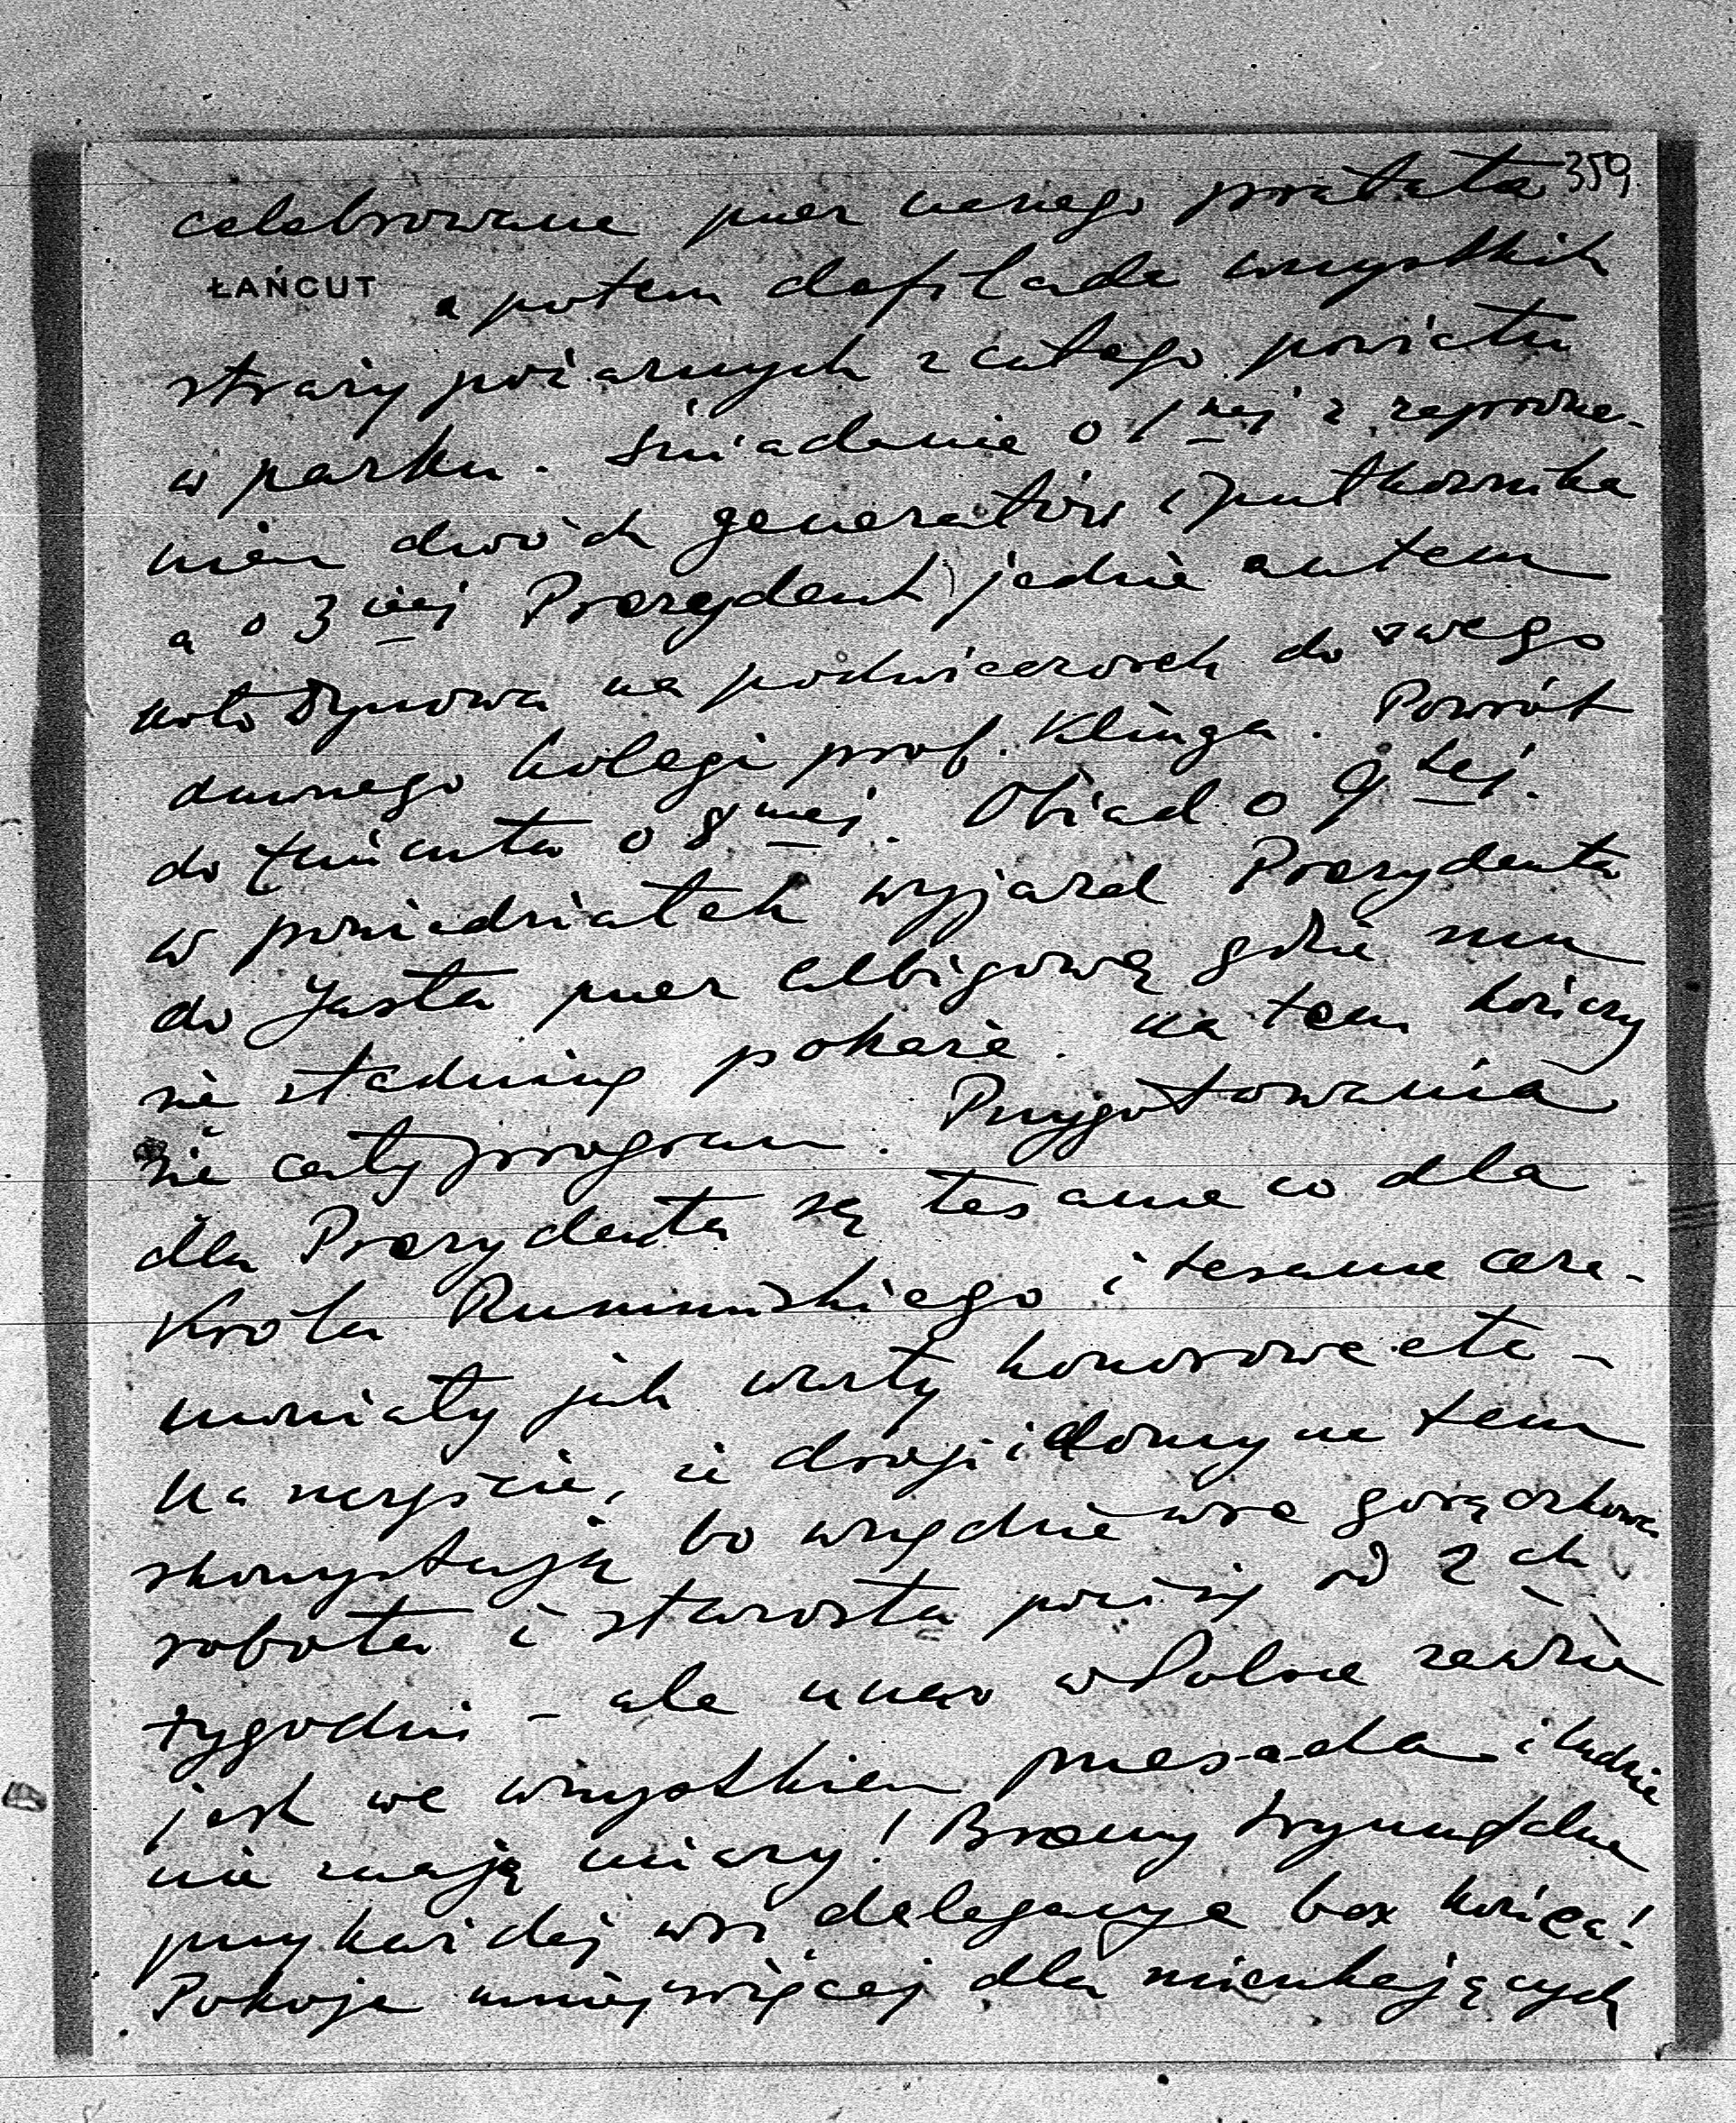 359
celebrowane przez naszego prałata
ŁAŃCUT
a potem defilada wszystkich
straży pożarnych z całego powiatu
w parku. Śniadanie o 1szej z zaprosze-
niem dwóch generałów i pułkownika
a o 3ciej Prezydent jedzie autem
koło Dynowa na podwieczorek do swego
dawnego kolegi prof. Klinga. Powrót
do Łańcuta o 8mej. Obiad o 9tej.
w poniedziałek wyjazd Prezydenta
do Jasła przez Albigową gdzie mu
się stadninę pokaże. Na tem kończy
się cały program. Przygotowania
dla Prezydenta są tesame co dla
Króla Rumuńskiego i tesame cere-
moniały jak warty honorowe etc -
Na szczęście, że drogi i domy na tem
skorzystają bo wszędzie wre gorączkowa
robota i starosta poci się od 2ch
tygodni - ale u nas w Polsce zawsze
jest we wszystkiem przesada i ludzie
nie mają miary! Bramy tryumfalne
przy każdej wsi, delegacye bez końca!
Pokoje mniej więcej dla mieszkających